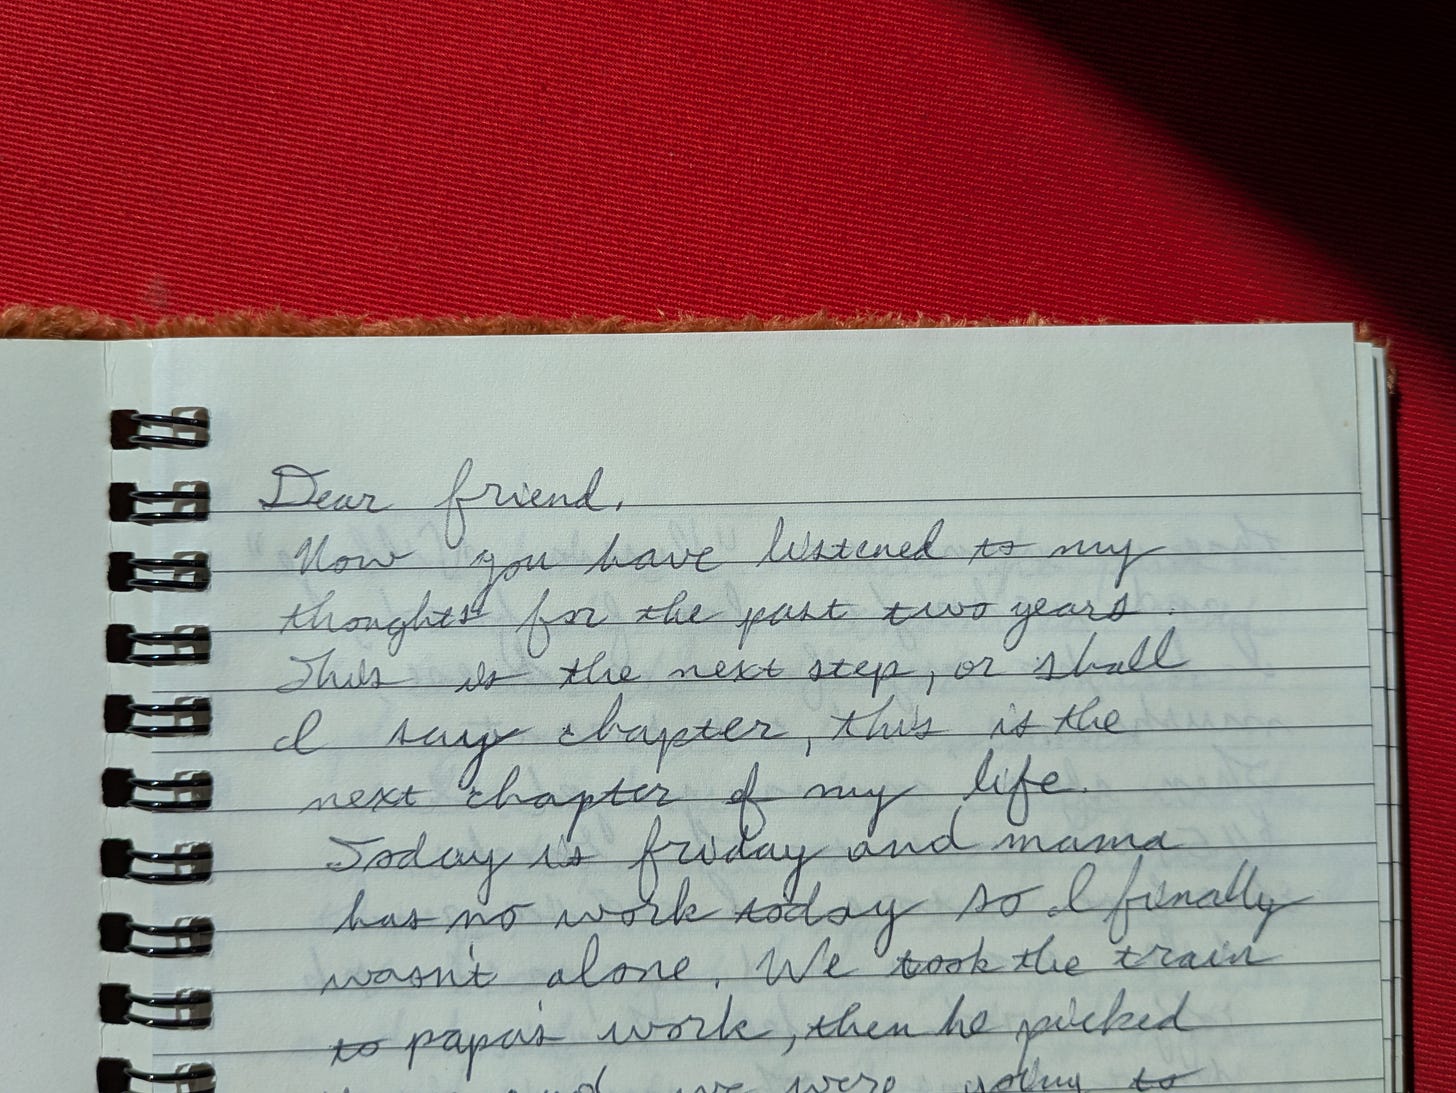 Dear friend,
Now you have listened to my
thoughts for the past two years.
This is the next step, or shall
I say chapter, this is the
next chapter of my life.
Today is friday and mama
has no work today so I finally
wasn't alone. We took the train
to papa's work, then he picked
and we were going to